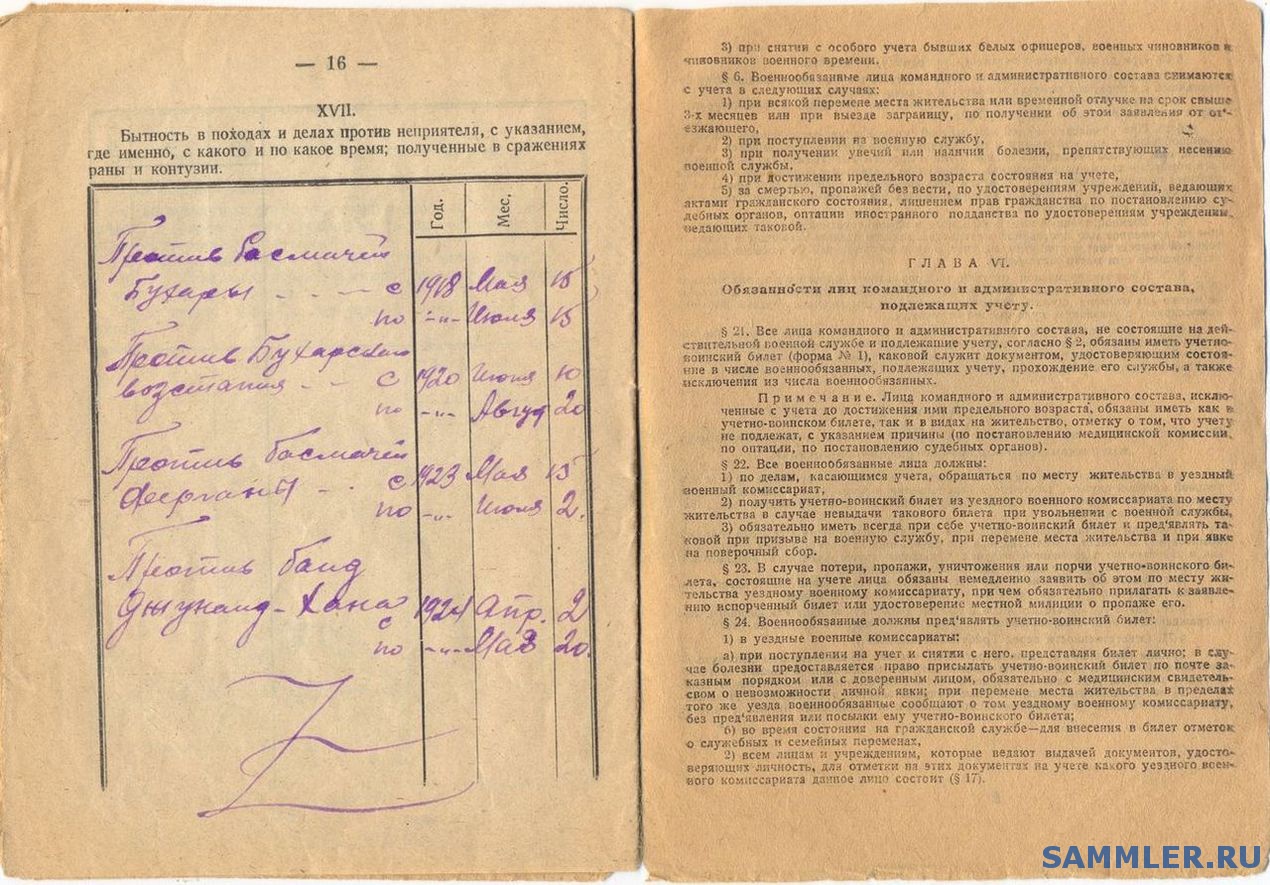 — 16 —
XVII.
Бытность в походах и делах против неприятеля, с указанием,
где именно, с какого и по какое время; полученные в сражениях
раны и контузии.
Год. Мес. Число.
Против басмачей
Бухары - - - с 1918 Мая 15
по -"- Июля 15
Против Бухарского
возстания - - с 1920 Июня 10
по -"- Август 20
Против басмачей
Ферганы - . с 1923 Мая 15
по -"- Июля 2.
Против банд
Джунаид-Хана 1924 Апр. 2
с
по -"- Мая 20.
3) при снятии с особого учета бывших белых офицеров, военных чиновников и
чиновников военного времени.
§ 6. Военнообязанные лица командного и административного состава снимаются
с учета в следующих случаях:
1) при всякой перемене места жительства или временной отлучке на срок свыше
3-х месяцев или при выезде заграницу, по получении об этом заявления от от'-
езжающего,
2) при поступлении на военную службу,
3) при получении увечий или наличии болезни, препятствующих несению
военной службы,
4) при достижении предельного возраста состояния на учете,
5) за смертью, пропажей без вести, по удостоверениям учреждений, ведающих
актами гражданского состояния, лишением прав гражданства по постановлению су-
дебных органов, оптации иностранного подданства по удостоверениям учреждений,
ведающих таковой.
ГЛАВА VI.
Обязанности лиц командного и административного состава,
подлежащих учету.
§ 21. Все лица командного и административного состава, не состоящие на дей-
ствительной военной службе и подлежащие учету, согласно § 2, обязаны иметь учетно-
воинский билет (форма № 1), каковой служит документом, удостоверяющим состоя-
ние в числе военнообязанных, подлежащих учету, прохождение его службы, а также
исключения из числа военнообязанных.
Примечание. Лица командного и административного состава, исклю-
ченные с учета до достижения ими предельного возраста, обязаны иметь как в
учетно-воинском билете, так и в видах на жительство, отметку о том, что учету
не подлежат, с указанием причины (по постановлению медицинской комиссии,
по оптации, по постановлению судебных органов).
§ 22. Все военнообязанные лица должны:
1) по делам, касающимся учета, обращаться по месту жительства в уездный
военный комиссариат,
2) получить учетно-воинский билет из уездного военного комиссариата по месту
жительства в случае невыдачи такового билета при увольнении с военной службы,
3) обязательно иметь всегда при себе учетно-воинский билет и пред'являть та-
ковой при призыве на военную службу, при перемене места жительства и при явке
на поверочный сбор.
§ 23. В случае потери, пропажи, уничтожения или порчи учетно-воинского би-
лета, состоящие на учете лица обязаны немедленно заявить об этом по месту жи-
тельства уездному военному комиссариату, при чем обязательно прилагать к заявле-
нию испорченный билет или удостоверение местной милиции о пропаже его.
§ 24. Военнообязанные должны пред'являть учетно-воинский билет:
1) в уездные военные комиссариаты:
а) при поступлении на учет и снятии с него, представляя билет лично; в слу-
чае болезни предоставляется право присылать учетно-воинский билет по почте за-
казным порядком или с доверенным лицом, обязательно с медицинским свидетель-
свом о невозможности личной явки; при перемене места жительства в пределах
того же уезда военнообязанные сообщают о том уездному военному комиссариату,
без пред'явления или посылки ему учетно-воинского билета;
б) во время состояния на гражданской службе—для внесения в билет отметок
о служебных и семейных переменах,
2) всем лицам и учреждениям, которые ведают выдачей документов, удосто-
веряющих личность, для отметки на этих документах на учете какого уездного воен-
ного комиссариата данное лицо состоит (§ 17).
SAMMLER.RU